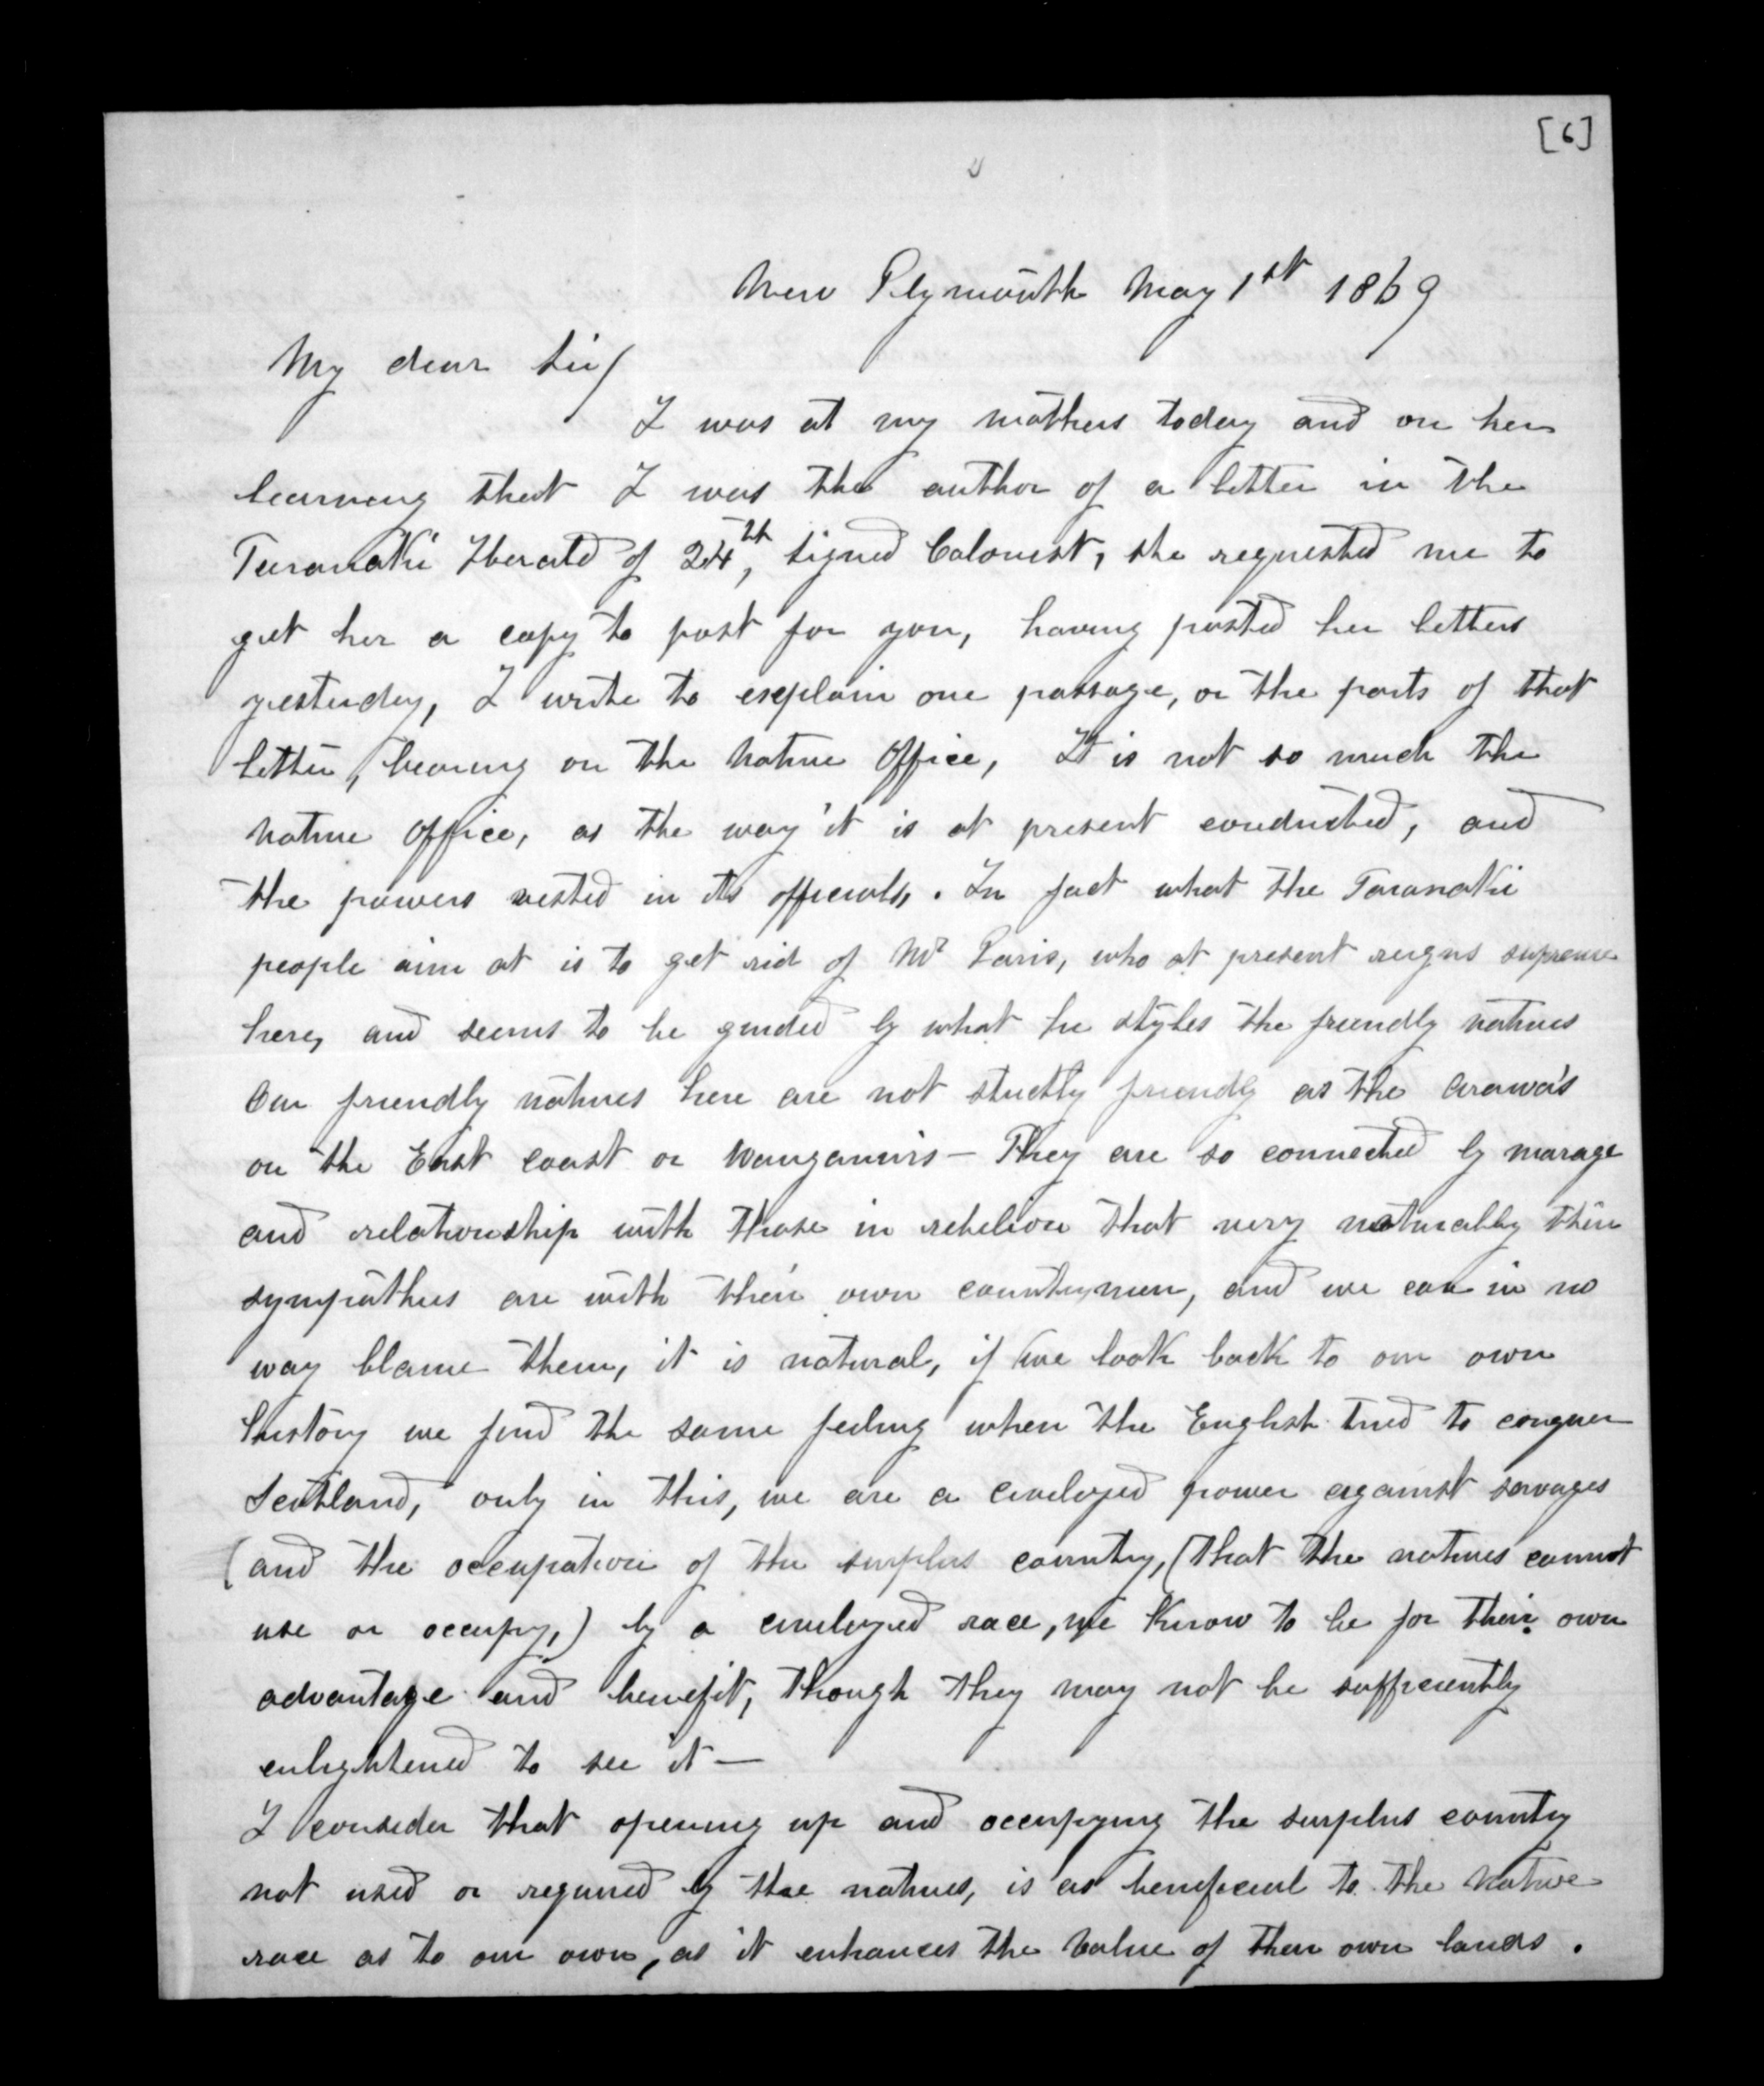 [6]
New Plymouth May 1st 1869
My dear Sir/
I was at my mothers today and on her
learning that I was the author of a letter in the
Taranaki Herald of 24th, signed Colonist, she requested me to
get her a copy to post for you, having posted her letters
yesterday, I write to explain one passage, or the parts of that
letter, bearing on the Native Office, It is not so much the
Native Office, as the way it is at present conducted, and
the powers vested in its officials. In fact what the Taranaki
people aim at is to get rid of Mr Paris, who at present reigns supreme
here, and seems to be guided by what he styles the friendly natives
Our friendly natives here are not strictly friendly as the Arawa's
on the East coast or Wanganuis - They are so connected by marage
and relationship with those in rebelion that very naturally their
sympathies are with their own countrymen, and we can in no
way blame them, it is natural, if we look back to our own
history we find the same feeling when the English tried to conquer
Scotland, only in this, we are a civilized power against savages
(and the occupation of the surplus country, (that the natives cannot
use or occupy,) by a civilized race, we know to be for their own
advantage and benefit, though they may not be sufficiently
enlightened to see it -
I consider that opening up and occupying the surplus country
not used or required by the natives, is as beneficial to the Native
race as to our own, as it enhances the value of their own lands.